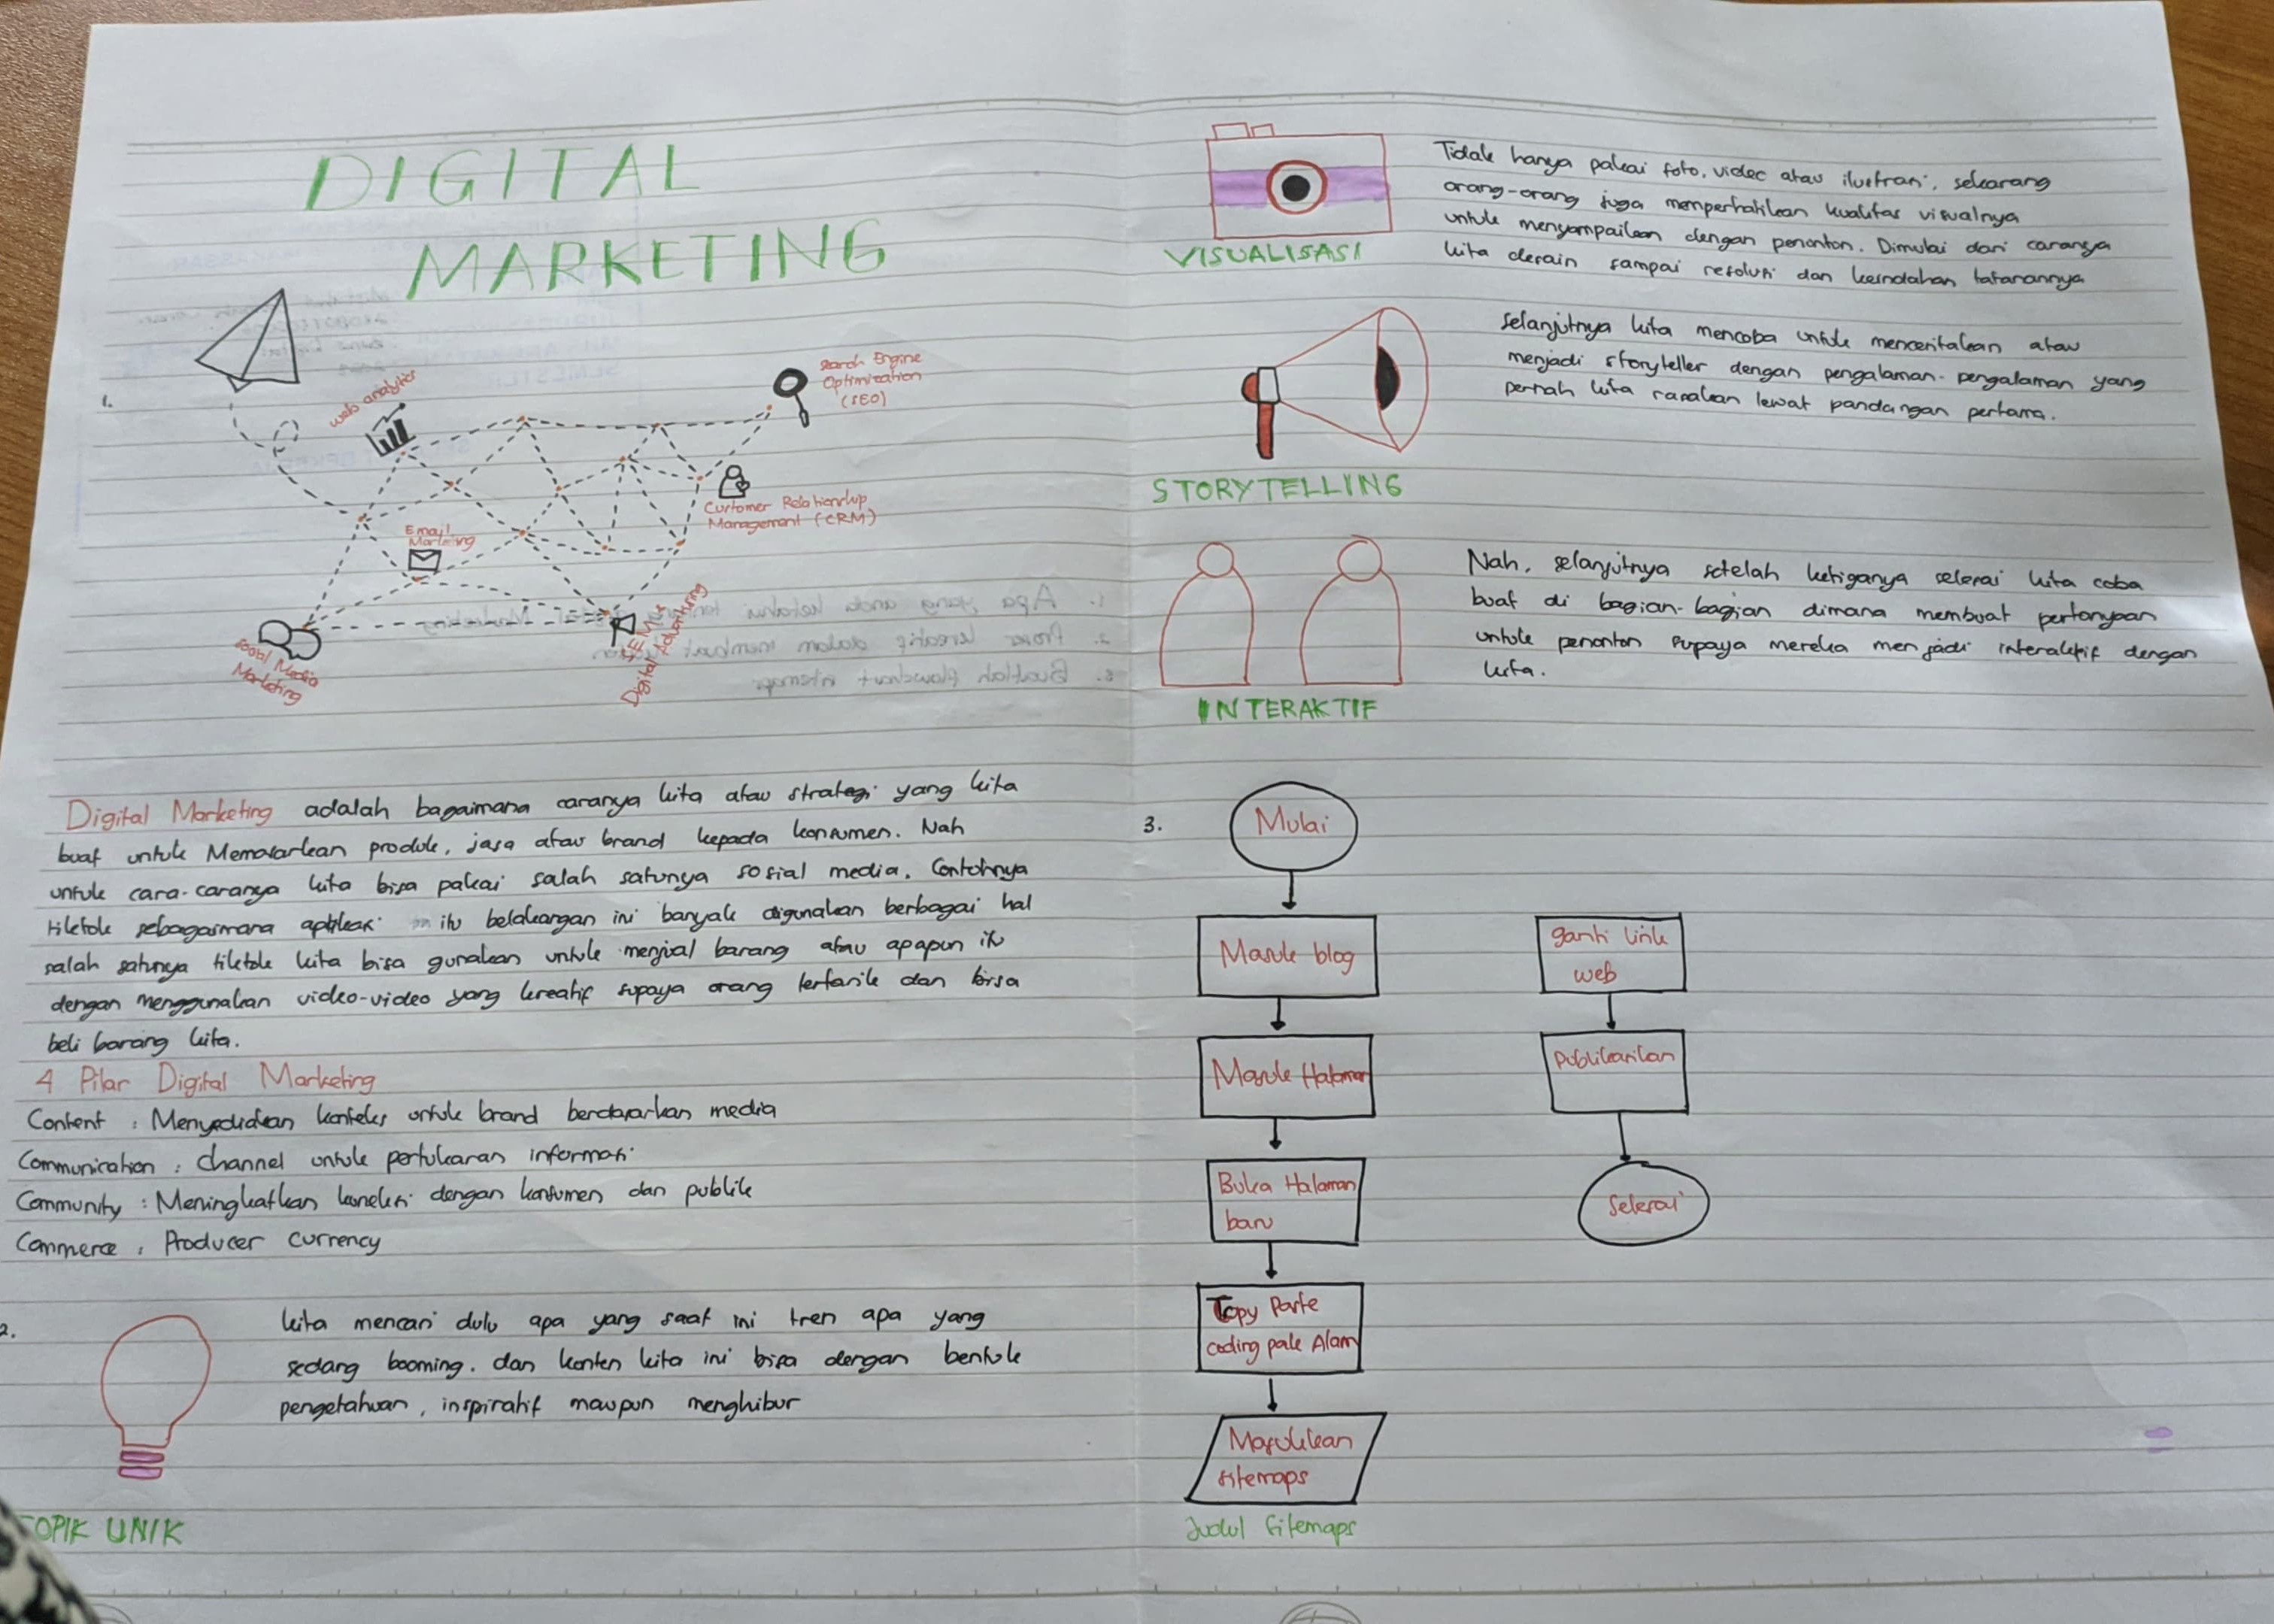 DIGITAL
MARKETING
1.
web analytics
Search Engine
Optimization
(SEO)
Customer Relationship
Management (CRM)
Email
Marketing
Social Media
Marketing
SEM &
Digital Advertising
Digital Marketing adalah bagaimana caranya kita atau strategi yang kita
buat untuk Memasarkan produk, jasa atau brand kepada konsumen. Nah
untuk cara-caranya kita bisa pakai salah satunya sosial media. Contohnya
tiktok sebagaimana aplikasi itu belakangan ini banyak digunakan berbagai hal
salah satunya tiktok kita bisa gunakan untuk menjual barang atau apapun itu
dengan menggunakan video-video yang kreatif supaya orang tertarik dan bisa
beli barang kita.
4 Pilar Digital Marketing
Content : Menyediakan konteks untuk brand berdasarkan media
Communication : Channel untuk pertukaran informasi
Community : Meningkatkan koneksi dengan konsumen dan publik
Commerce : Producer currency
2.
kita mencari dulu apa yang saat ini tren apa yang
sedang booming. dan konten kita ini bisa dengan bentuk
pengetahuan, inspiratif maupun menghibur
TOPIK UNIK
VISUALISASI
Tidak hanya pakai foto, video atau ilustrasi, sekarang
orang-orang juga memperhatikan kualitas visualnya
untuk menyampaikan dengan penonton. Dimulai dari caranya
kita desain sampai resolusi dan keindahan tatanannya
STORYTELLING
selanjutnya kita mencoba untuk menceritakan atau
menjadi storyteller dengan pengalaman-pengalaman yang
pernah kita rasakan lewat pandangan pertama.
INTERAKTIF
Nah, selanjutnya setelah ketiganya selesai kita coba
buat di bagian-bagian dimana membuat pertanyaan
untuk penonton supaya mereka menjadi interaktif dengan
kita.
3.
Mulai
Masuk blog
Masuk Halaman
Buka Halaman
baru
Copy Paste
coding pak Alam
Masukkan
sitemaps
Judul Sitemaps
ganti link
web
Publikasikan
Selesai